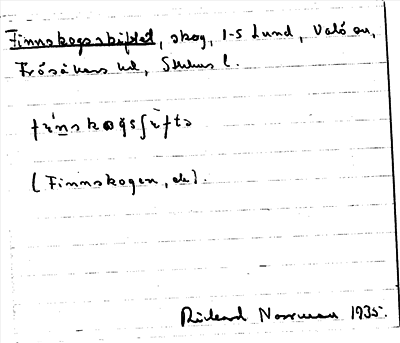 Finnskogsskiftet, skog, 1-5 Lund, Valö sn,
Frösåkers hd, Sthlms l.
(Finnskogen, do).
Rickard Norrman 1935.